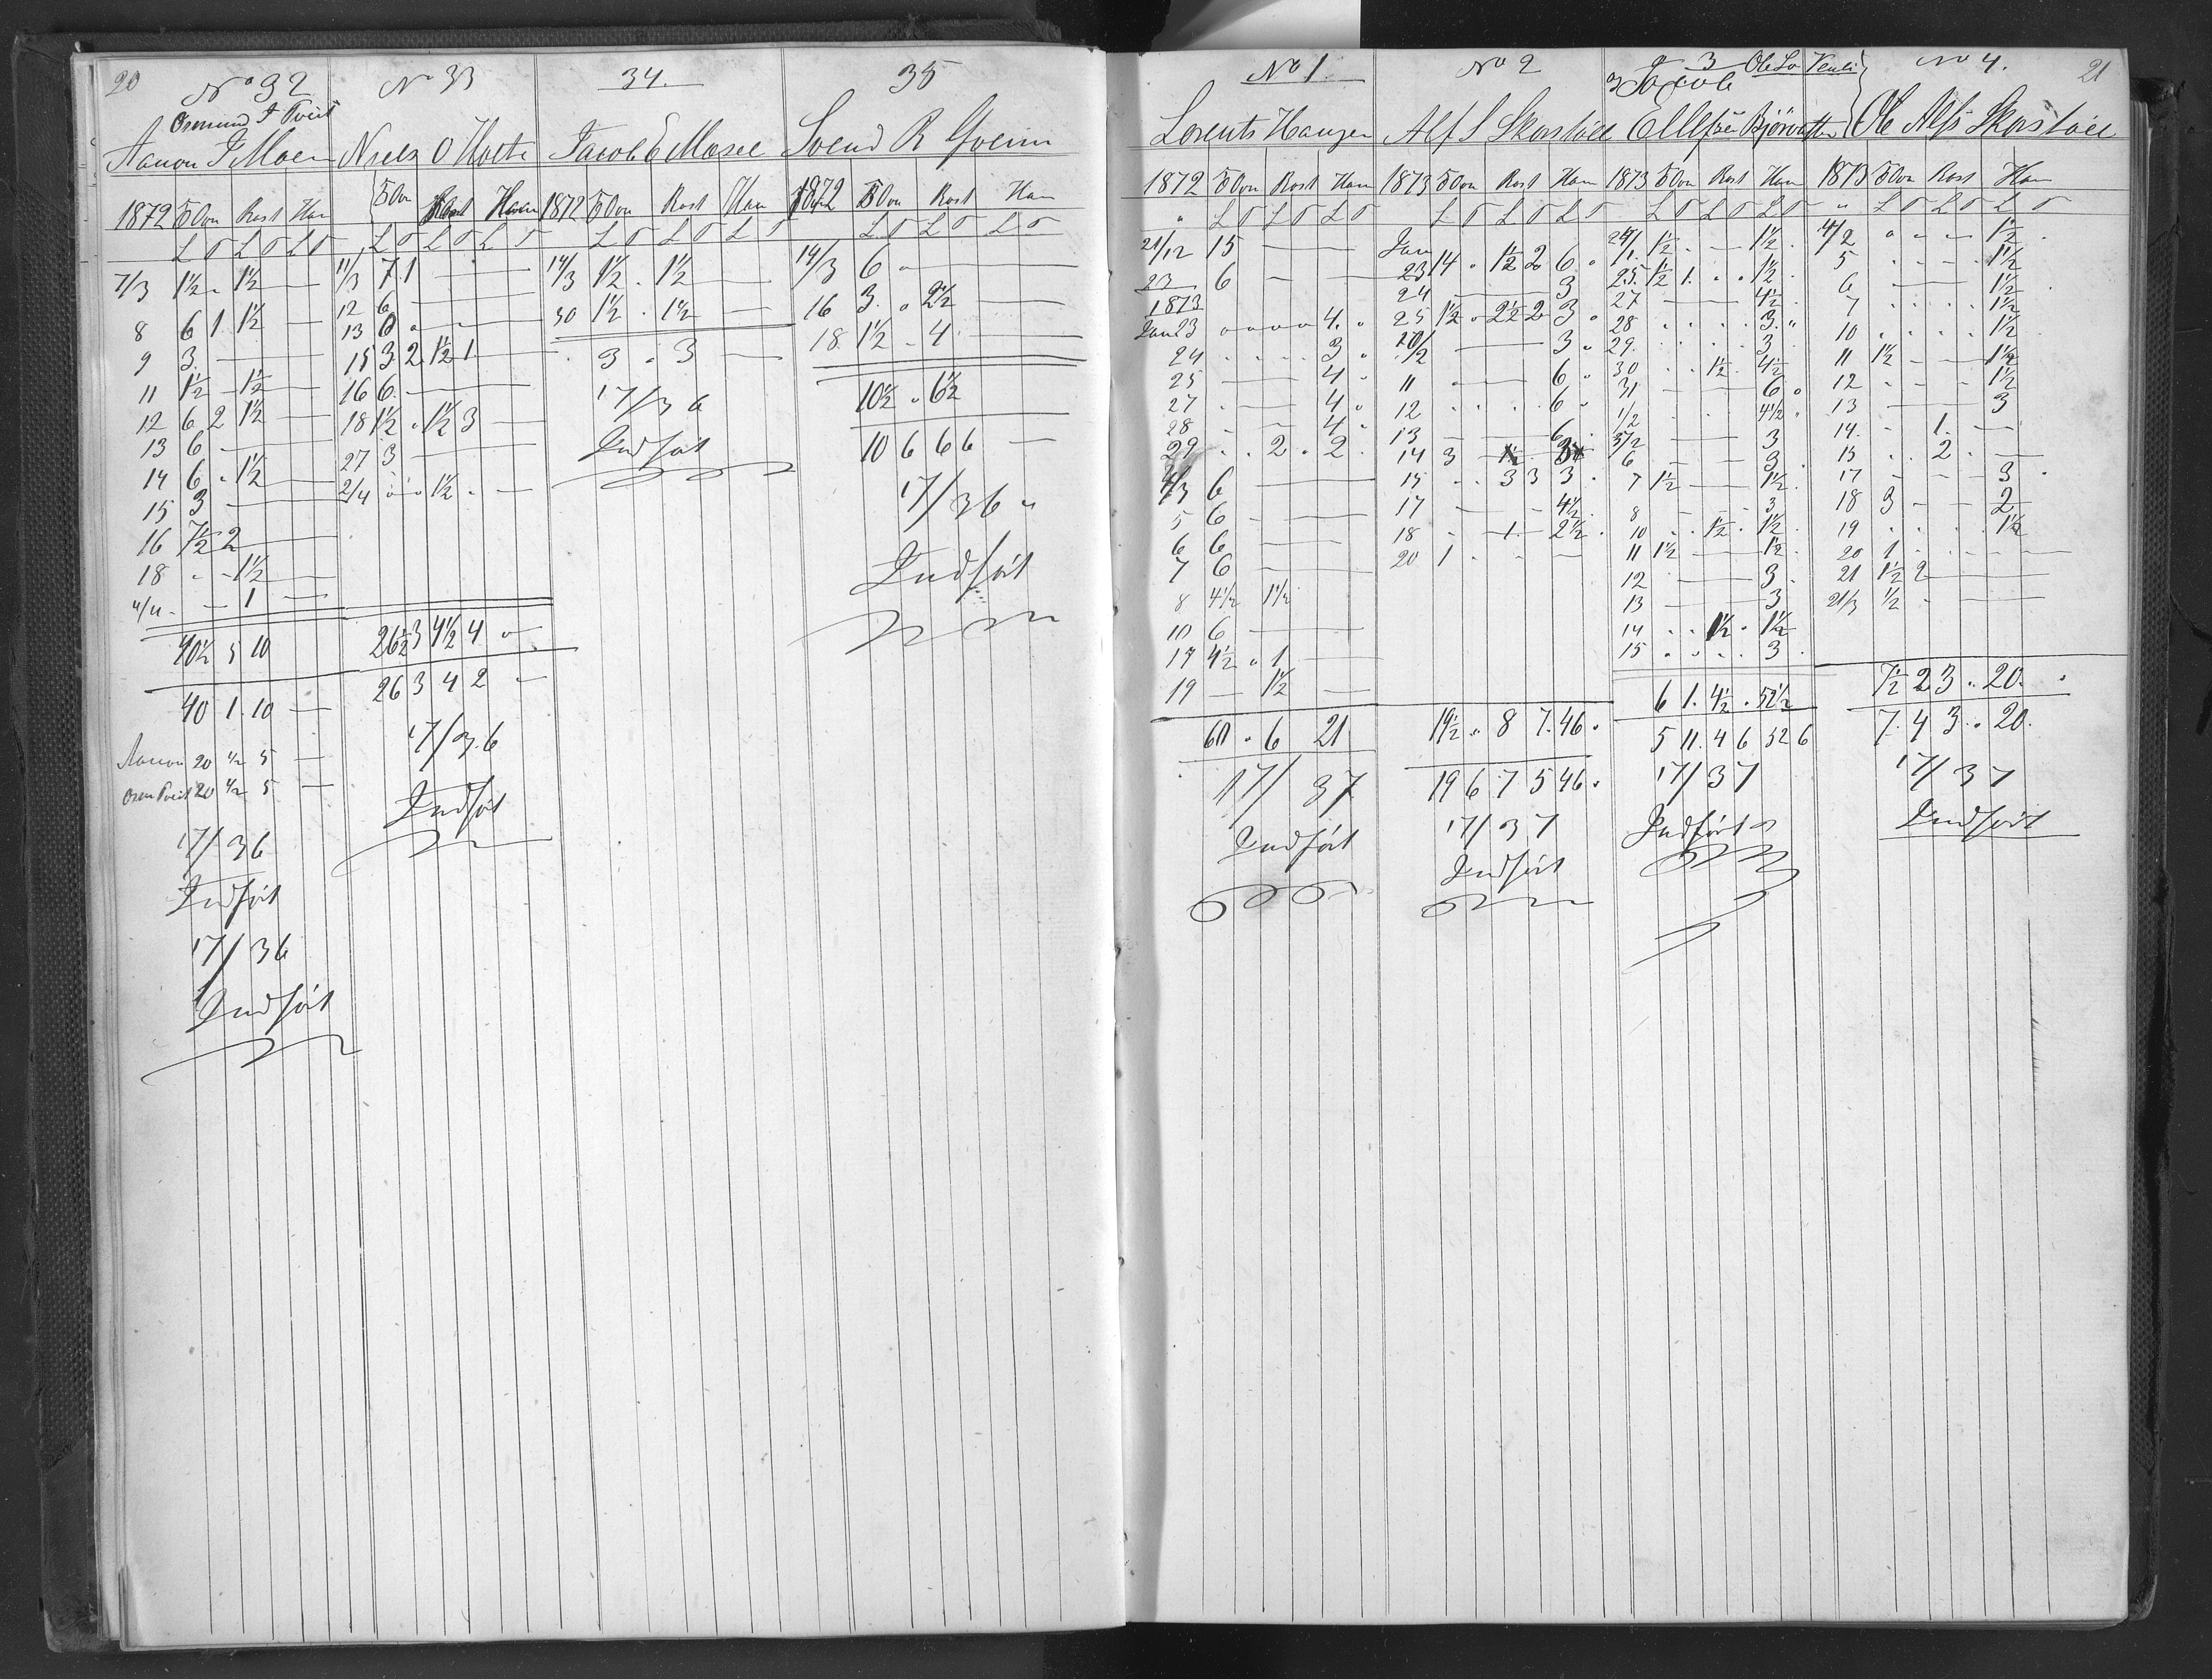 20
No 32
Osmund T Tveit
Aanon T Moen
1872 Ovn Rost Ham
L T L T L T
7/3 1½ . 1½ —
8 6 1 . 1½ —
9 3 . —
11 1½ — 1½ —
12 6 2 1½ —
13 6 —
14 6 . 1½ —
15 3 —
16 7½ 2 —
18 . - 1½ —
4/4 - — 1 —
40½ 5 10
40 1 . 10 —
Aanon 20 ½ 5 —
Osm Tveit 20 ½ 5 —
17/36
Indført
17/36
Indført
No 33
Niels O Holte
Ovn Rost Ham
L T L T L T
11/3 7 1 —
12 6 —
13 6 . —
15 3 2 1½ 1 —
16 6 . —
18 1½ . 1½ 3 —
27 3 —
2/4 . . . 1½ . —
26½ 3 4½ 4 . —
26 3 4 2 —
17/36
Indført
34.
Jacob E Mosee
1872 Ovn Rost Ham
L T L T L T
14/3 1½ . 1½ —
30 1½ . 1½ —
3 . 3 —
17/36
Indført
35
Svend R
1872 Ovn Rost Ham
L T L T L T
14/3 6 . —
16 3 . . 2½ —
18 1½ . 4 . —
10½ . 6½
10 6 6 6 —
17/36 .
Indført
No 1.
Lorents Haugen
1872 Ovn Rost Ham
" L T L T L T
21/12 15 — —
23 6 — —
1873
Jan 23 . . . . 4 . .
24 . . . . 3 .
25 — — 4 .
27 . — 4 .
28 - — 4 .
29 . . 2 . 2 .
4/3 6 —
5 6 . —
6 6 —
7 6 . —
8 4½ 1½
10 6 —
17 4½ . 1 —
19 — 1½ —
60 . 6 21
17/37
Indført
No 2
Alf S Skorstöel
1873 Ovn Rost Ham
L T L T L T
Jan
23 14 . 1½ 2 6 .
24 — 3
25 1½ . 2½ 2 3 .
10/2 — 3 .
11 . — 6 .
12 . . . . 6 .
13 — 6 .
14 3 — 1½ . 3
15 . . 3 3 3 .
17 — - 4½ .
18 . - 1 . 2½ .
20 1 . . - —
19½ . 8 7 . 46 .
19 6 7 5 46 .
17/37
Indført
3 Ole
Jacob
Ellefsen Bjørvatten
1873 Ovn Rost Ham
L T L T L T
24/1 1½ . — 1½ .
25 . 1½ 1 . . . 1½ .
27 — — 4½ .
28 . . . . 3 . "
29 . . . . . 3 .
30 . . 1½ . 4½
31 — — 6 .
1/2 . . 4½ .
3/2 — — 3
6 — — 3 .
7 1½ — 1½ .
8 - — 3
10 . . 1½ . 1½ .
11 1½ — 1½ .
12 — 3 .
13 — 3
14 . . 1½ . 1½
15 . . . . 3 .
6 1 . 4½ . 52½
5 11 . 4 6 52 6
17/37
Indført
No 4.
21
Ole Alfs Skorstöel
1873 Ovn Rost Ham
" L T L T L T
4/2 . - - 1½ .
5 . . . - 1½
6 — 1½
7 . . . . 1½
10 . . . . 1½
11 1½ - - 1½
12 - - - 1½
13 — — 3
14 . - 1 . —
15 . . 2 . —
17 — — 3 .
18 3 - — 2
19 . . . . 1½
20 1 . . . —
21 1½ 2 —
21/3 ½ - —
7½ 2 3 . 20 . .
7 . 4 3 . . 20 .
17/37
Indført